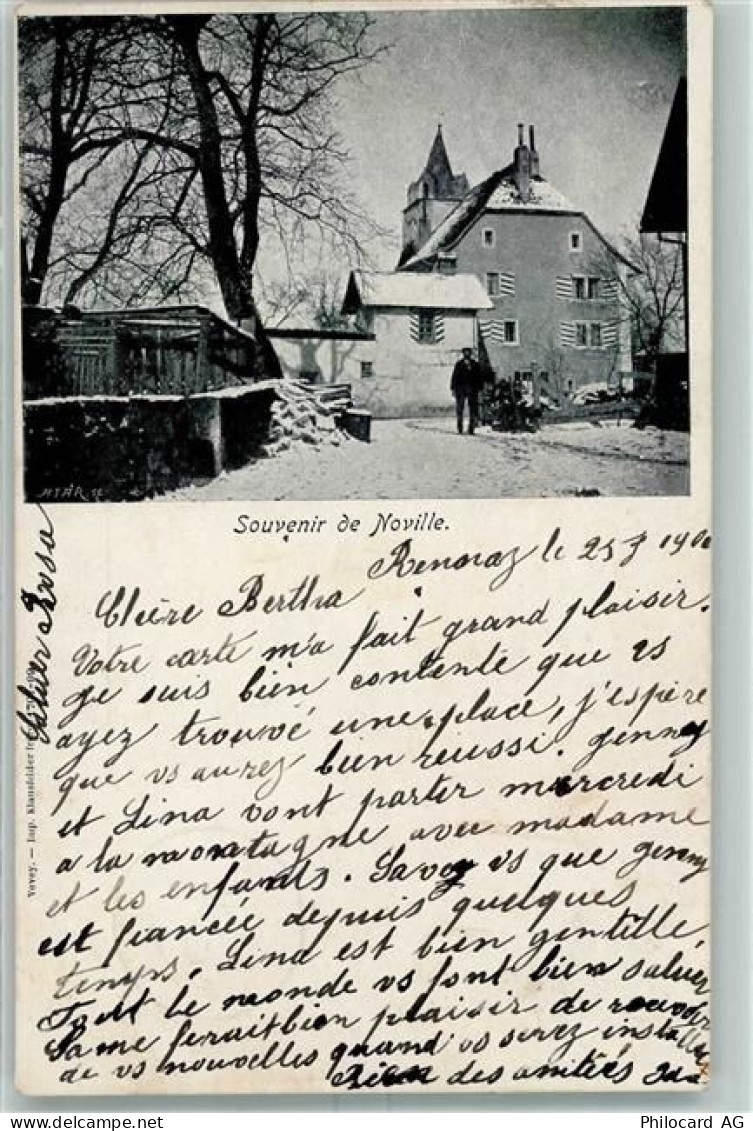 Souvenir de Noville.
Rennaz le 25 7 190
Chère Bertha
Votre carte m'a fait grand plaisir.
je suis bien contente que vs
ayez trouvé une place, j'espère
que vs aurez bien reussi. Jenny
et Lina vont partir mercredi
a la montagne avec madame
et les enfants. Savez vs que Jenny
est fiancée depuis quelques
temps. Lina est bien gentille,
Tout le monde vs font bien saluer
Sa me ferait bien plaisir de recevoir
de vs nouvelles quand vs serez installée
Bien des amitiés Ida
Saluer Rosa
Vevey. — Imp. Klausfelder
Philocard AG